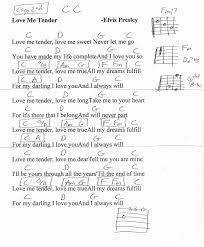 Capo 2nd C C
Love Me Tender -Elvis Presley
Fm7
C D G C
Love me tender, love me sweet Never let me go
C D G C
You have made my life completeAnd I love you so
C Am G F Fm C
Love me tender, love me trueAll my dreams fulfill
C D G C
For my darling I love youAnd I always will
C D G C
Love me tender, love me longTake me to your heart
C D G C
For it's there that I belongAnd will never part
C Am G F Fm C
Love me tender, love me trueAll my dreams fulfill
C D G C
For my darling I love youAnd I always will
C D G C
Love me tender, love me dearTell me you are mine
C D G C
I'll be yours through all the yearsTil the end of time
C Am G F Fm C
Love me tender, love me trueAll my dreams fulfill
C D G C
For my darling I love youAnd I always will